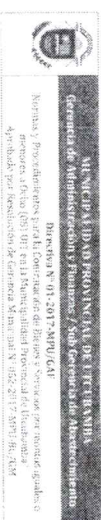 MUNICIPALIDAD PROVINCIAL DE UTCUBAMBA
Gerencia de Administración y Finanzas / Sub Gerencia de Abastecimiento
Directiva N° 03-2017-MPU/GAF
Normas y Procedimientos para la Contratación de Bienes y Servicios por montos iguales o
menores a Ocho (08) UIT en la Municipalidad Provincial de Utcubamba
Aprobada por Resolución de Gerencia Municipal N° 052-2017-MPU-BG/GM